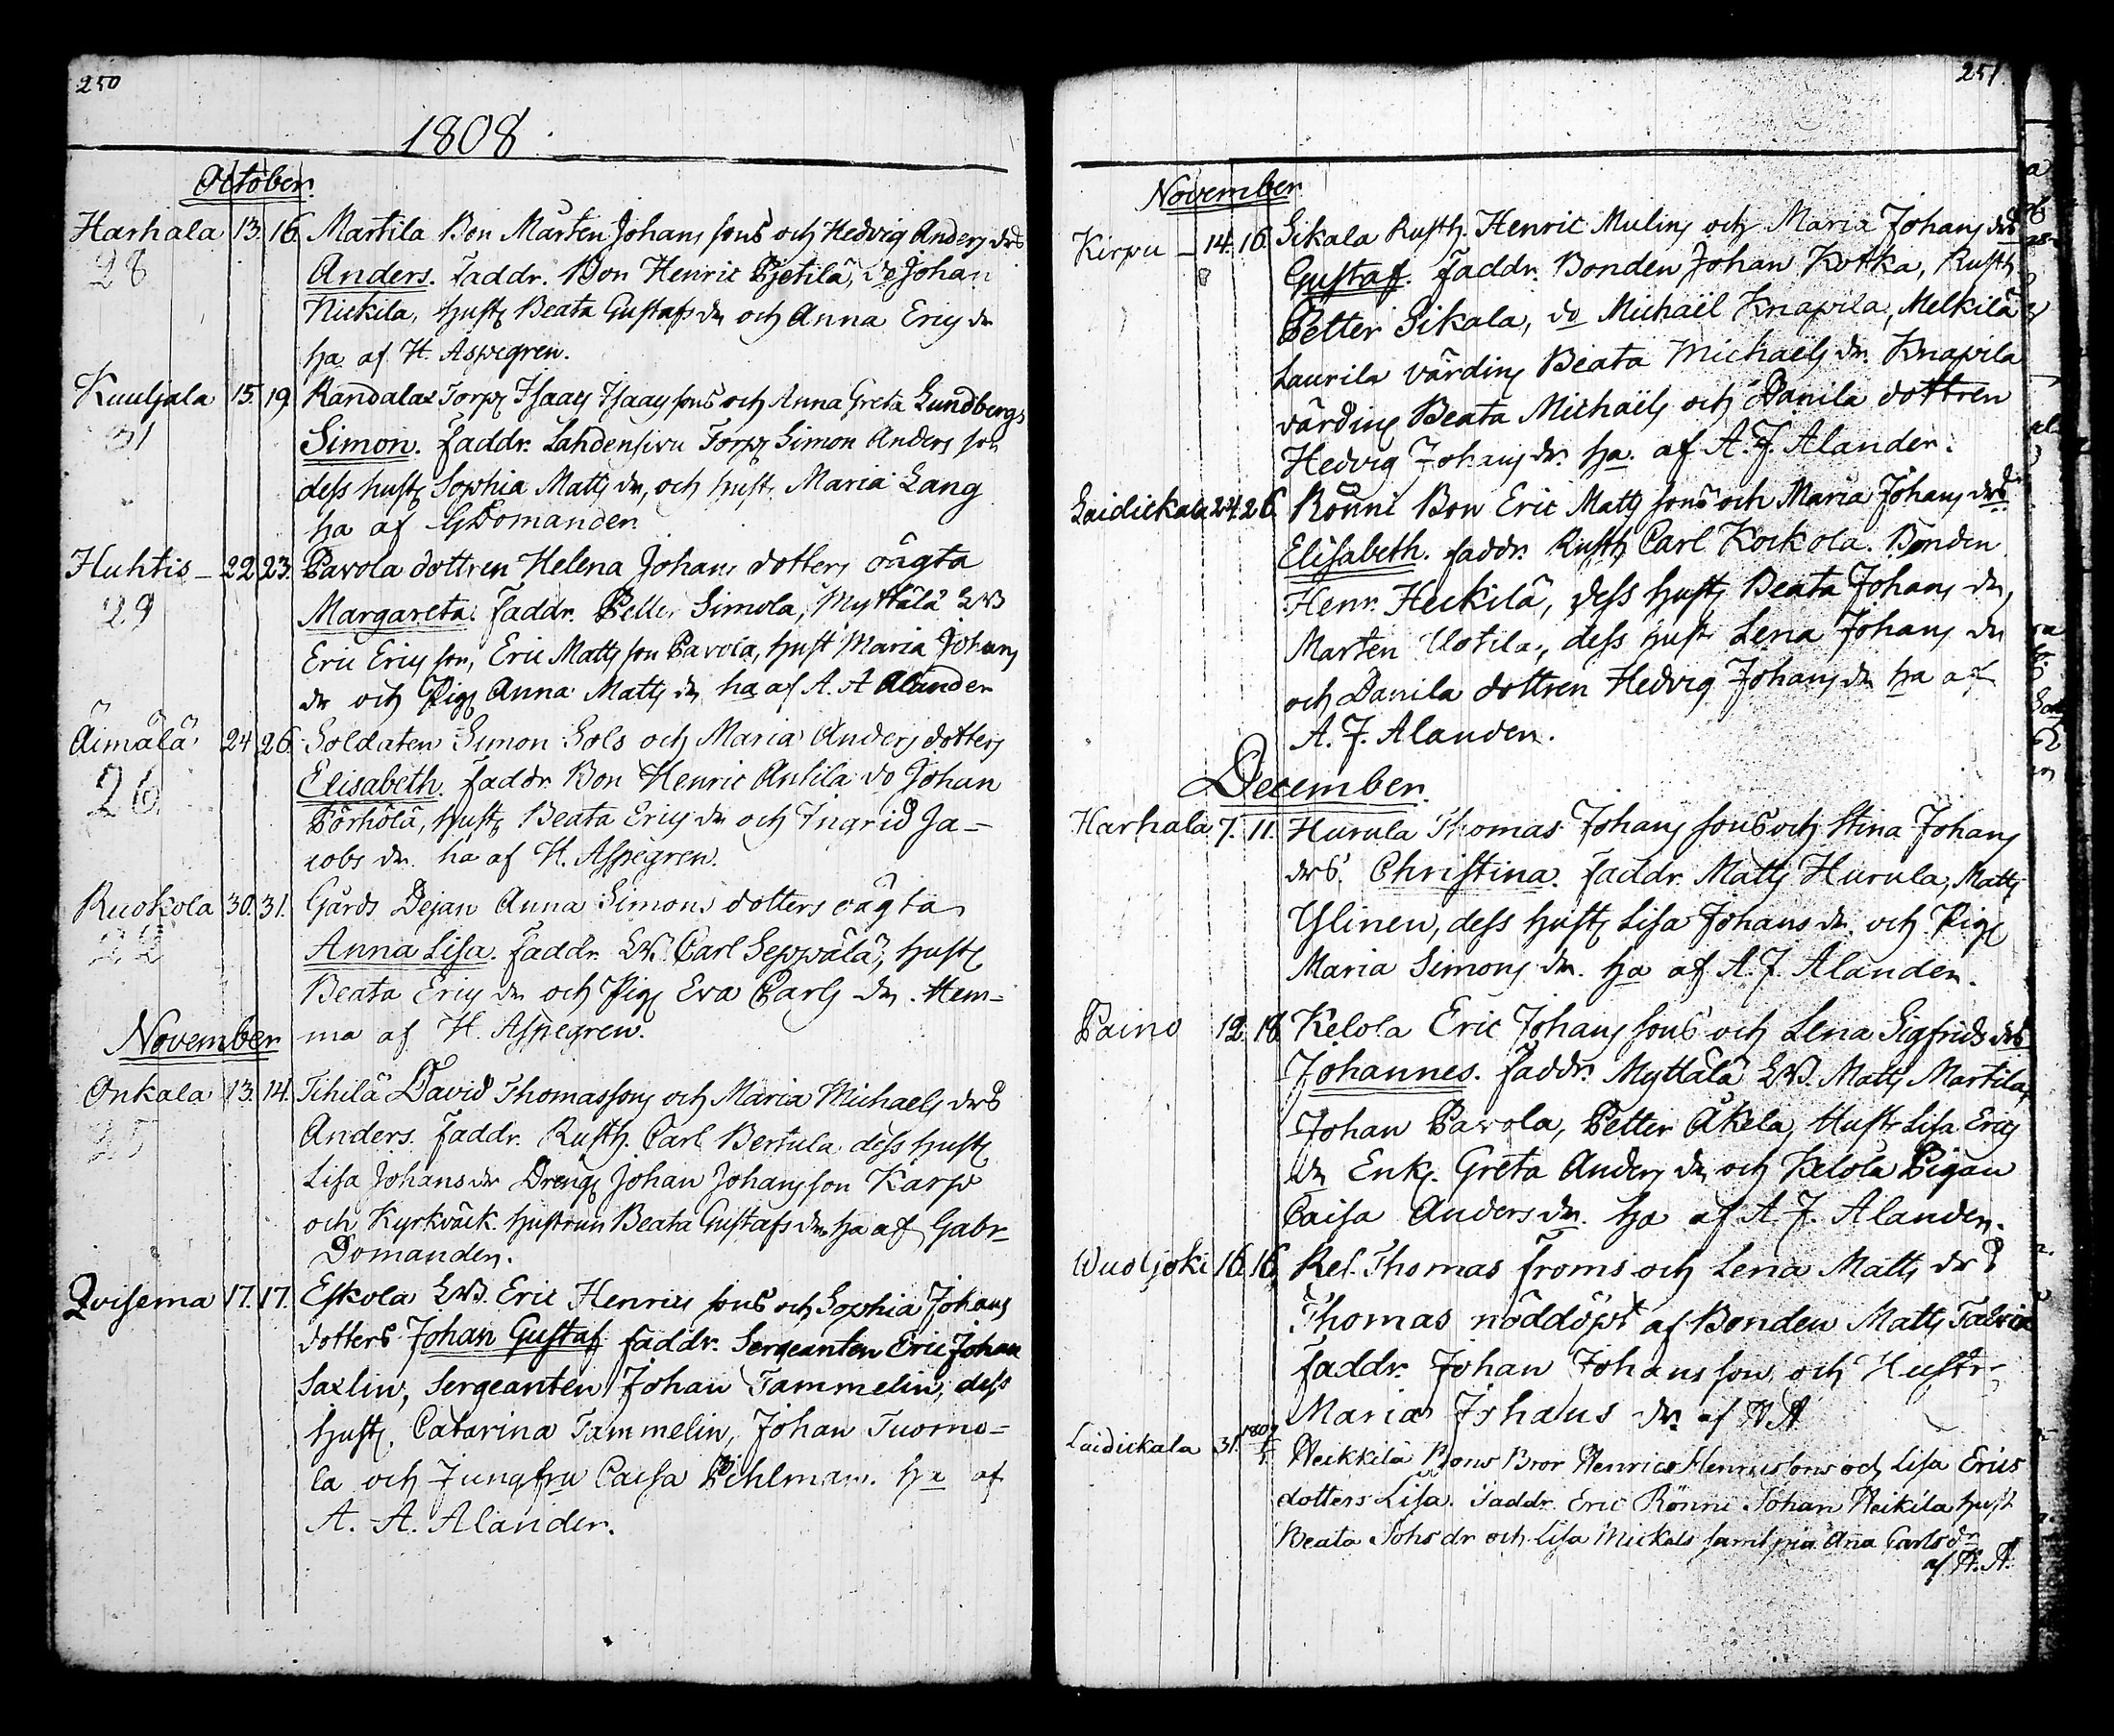 250
1808
October.
Harhala 13. 16. Martila Bon Mårten Johans sons och Hedvig Anders drs
28 Anders. Faddr. Bon Henric Pjetilä, do Johan
Nickila, Hust. Beata Gustafs dr och Anna Erics dr
ha af H. Aspegren.
Kuuljala 15. 19. Randala Torp. Isaac Isaacs sons och Anna Greta Lundbergs
31 Simon. Faddr. Lahdensivu Torp. Simon Anders son
dess hust. Sophia Matts dr, och hust. Maria Lang
ha af G Domander
Huhtis – 22 23. Pavola dottren Helena Johans dotters oägta
29 Margareta. Faddr. Petter Simola, Myttälä LW
Eric Erics son, Eric Matts son Pavola, hust Maria Johans
dr och Pig. Anna Matts dr ha af A. A Alander
Äimälä 24 26. Soldaten Simon Sols och Maria Anders dotters
26. Elisabeth. Faddr. Bon Henric Antila do Johan
Pörhölä, hust. Beata Erics dr och Ingrid Ja-
cobs dr. ha af H. Aspegren.
Ruokola 30. 31. Gårds Dejan Anna Simons dotters oägta
22 Anna Lisa. Faddr. LW. Carl Seppälä, hust.
Beata Erics dr och Pig. Eva Carls dr. Hem-
November ma af H. Aspegren.
Onkala 13. 14. Tihilä David Thomassons och Maria Michaels drs
25 Anders. Faddr. Rusth. Carl Bertula dess hust.
Lisa Johans dr Dreng. Johan Johans son Karp
och Kyrkväck. hustrun Beata Gustafs dr. ha af Gabr.
Domander.
Qvisema 17. 17. Eskola LW. Eric Henrics sons och Sophia Johans
dotters Johan Gustaf faddr. Sergeanten Eric Johan
Saxlin, Sergeanten Johan Tammelin, dess
hust. Catarina Tammelin, Johan Tuomo-
la och Jungfru Caisa Pihlman. ha af
A. A. Alander.
251.
November
Kirpu – 14. 16. Sikala Rusth. Henric Mulins och Maria Johans drs
8 Gustaf. Faddr. Bonden Johan Kotka, Rusth.
Petter Sikala, do Michaël Knapila, Melkilä
Laurila värdin. Beata Michaels dr. Knapila
värdin. Beata Michaëls och Danila dottren
Hedvig Johans dr. ha. af A. J. Alander.
Laidickala 24. 26. Rönni Bon Eric Matts sons och Maria Johans drs
Elisabeth. faddr. Rusth. Carl Kockola. Bonden
Henr. Heckilä, dess hust. Beata Johans dr,
Marten Uotila, dess hust. Lena Johans dr
och Danila dottren Hedvig Johans dr ha af
A. J. Alander.
December.
Harhala 7. 11. Hurula Thomas Johans sons och Stina Johans
drs. Christina. Faddr. Matts Hurula, Matts
Ylinen, dess hust. Lisa Johans dr. och Pig.
Maria Simons dr. ha af A. J. Alander.
Paino 12. 18. Kelola Eric Johans sons och Lena Sigfrids drs
Johannes. Faddr. Myttälä LW. Matts Martila,
Johan Pavola, Petter Äkela, Hustr Lisa Erics
dr Enk. Greta Anders dr, och Kelola Pigan
Caisa Anders dr. ha af A. J. Alander.
Wuoljoki 16. 16. Ref. Thomas Froms och Lena Matts drs
Thomas nöddöpt af Bonden Matts Talvia
faddr. Johan Johans son och Hustr.
Maria Johans dr. af A A
Laidickala 31. 1809 1/1 Heikkilä Bons Bror Henrics Henricssons och Lisa Erics
dotters Lisa. Faddr. Eric Rönni Johan Heikila hust.
Beata Johs dr och Lisa Mickels samt pig. Ana Carls dr
af A. A.